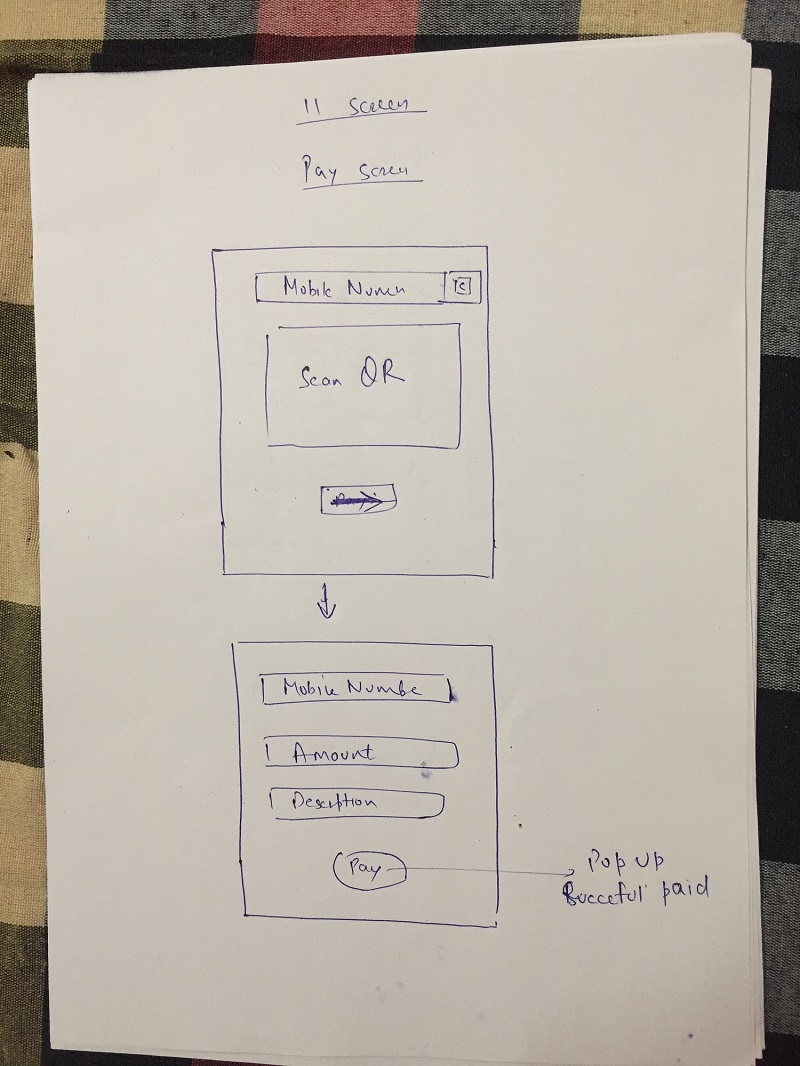 11 screen
Pay screen
Mobile Numen
Scan QR
Mobile Numbe
Amount
Description
Pay
Pop up
Succeful paid